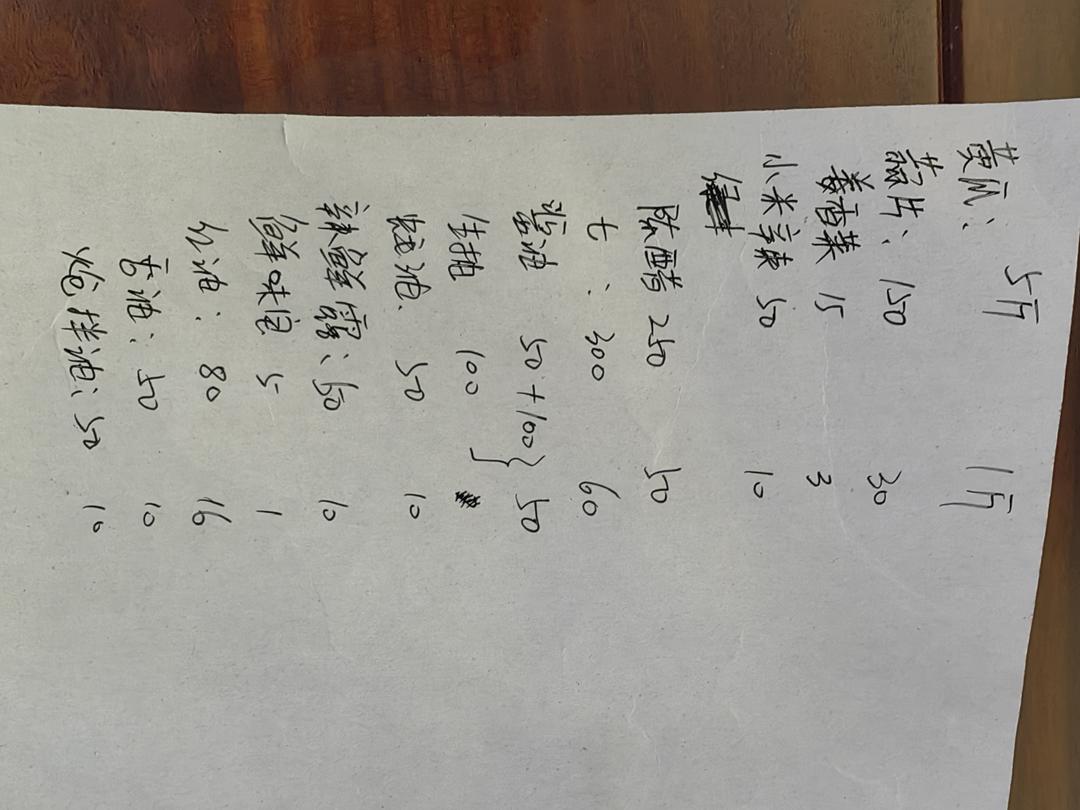 黄瓜： 5斤 1斤
蒜片： 150 30
姜香菜 15 3
小米辣 50 10
陈醋 250 50
七： 300 60
酱油 50+100 } 50
生抽 100
蚝油 50 10
辣鲜露： 50 10
鲜味宝 5 1
红油： 80 16
50 10
炝拌油： 50 10